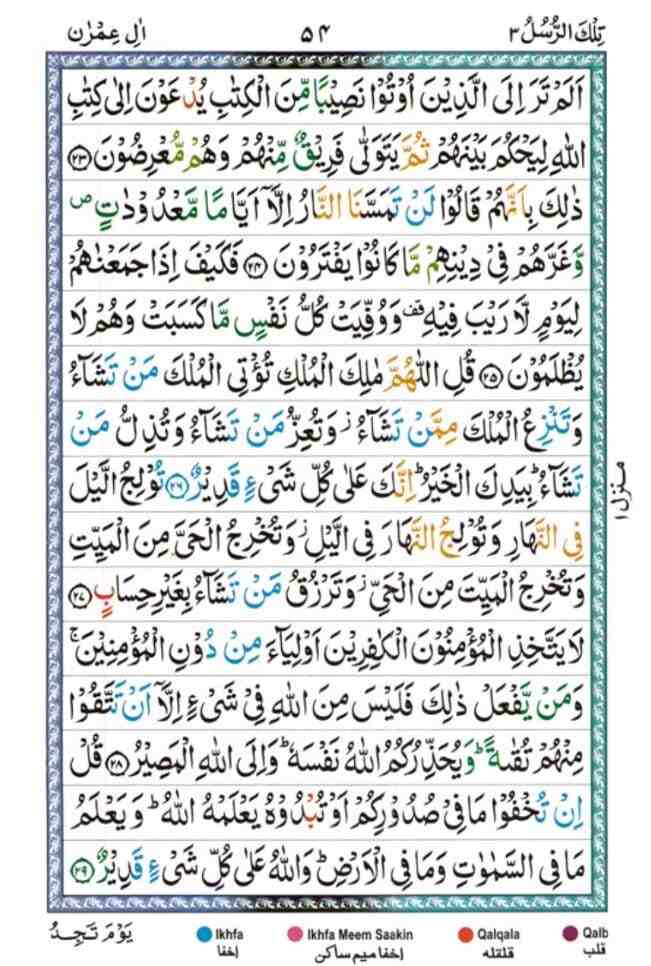 تِلْكَ الرُّسُلُ ۳
۵۴
اٰلِ عِمْرٰن
اَلَمْ تَرَ اِلَى الَّذِيْنَ اُوْتُوْا نَصِيْبًا مِّنَ الْكِتٰبِ يُدْعَوْنَ اِلٰى كِتٰبِ
اللّٰهِ لِيَحْكُمَ بَيْنَهُمْ ثُمَّ يَتَوَلّٰى فَرِيْقٌ مِّنْهُمْ وَهُمْ مُّعْرِضُوْنَ ﴿۲۳﴾
ذٰلِكَ بِاَنَّهُمْ قَالُوْا لَنْ تَمَسَّنَا النَّارُ اِلَّاۤ اَيَّامًا مَّعْدُوْدٰتٍ ۖ
وَّغَرَّهُمْ فِيْ دِيْنِهِمْ مَّا كَانُوْا يَفْتَرُوْنَ ﴿۲۴﴾ فَكَيْفَ اِذَا جَمَعْنٰهُمْ
لِيَوْمٍ لَّا رَيْبَ فِيْهِ قف وَوُفِّيَتْ كُلُّ نَفْسٍ مَّا كَسَبَتْ وَهُمْ لَا
يُظْلَمُوْنَ ﴿۲۵﴾ قُلِ اللّٰهُمَّ مٰلِكَ الْمُلْكِ تُؤْتِي الْمُلْكَ مَنْ تَشَآءُ
وَتَنْزِعُ الْمُلْكَ مِمَّنْ تَشَآءُ ز وَتُعِزُّ مَنْ تَشَآءُ وَتُذِلُّ مَنْ
تَشَآءُ ؕ بِيَدِكَ الْخَيْرُ ؕ اِنَّكَ عَلٰى كُلِّ شَيْءٍ قَدِيْرٌ ﴿۲۶﴾ تُوْلِجُ الَّيْلَ
فِي النَّهَارِ وَتُوْلِجُ النَّهَارَ فِي الَّيْلِ ز وَتُخْرِجُ الْحَيَّ مِنَ الْمَيِّتِ
وَتُخْرِجُ الْمَيِّتَ مِنَ الْحَيِّ ز وَتَرْزُقُ مَنْ تَشَآءُ بِغَيْرِ حِسَابٍ ﴿۲۷﴾
لَا يَتَّخِذِ الْمُؤْمِنُوْنَ الْكٰفِرِيْنَ اَوْلِيَآءَ مِنْ دُوْنِ الْمُؤْمِنِيْنَ ۚ
وَمَنْ يَّفْعَلْ ذٰلِكَ فَلَيْسَ مِنَ اللّٰهِ فِيْ شَيْءٍ اِلَّاۤ اَنْ تَتَّقُوْا
مِنْهُمْ تُقٰىةً ؕ وَيُحَذِّرُكُمُ اللّٰهُ نَفْسَهٗ ؕ وَاِلَى اللّٰهِ الْمَصِيْرُ ﴿۲۸﴾ قُلْ
اِنْ تُخْفُوْا مَا فِيْ صُدُوْرِكُمْ اَوْ تُبْدُوْهُ يَعْلَمْهُ اللّٰهُ ؕ وَيَعْلَمُ
مَا فِي السَّمٰوٰتِ وَمَا فِي الْاَرْضِ ؕ وَاللّٰهُ عَلٰى كُلِّ شَيْءٍ قَدِيْرٌ ﴿۲۹﴾
منزل ۱
يَوْمَ تَجِدُ
Ikhfa اخفا
Ikhfa Meem Saakin اخفا ميم ساكن
Qalqala قلقله
Qalb قلب